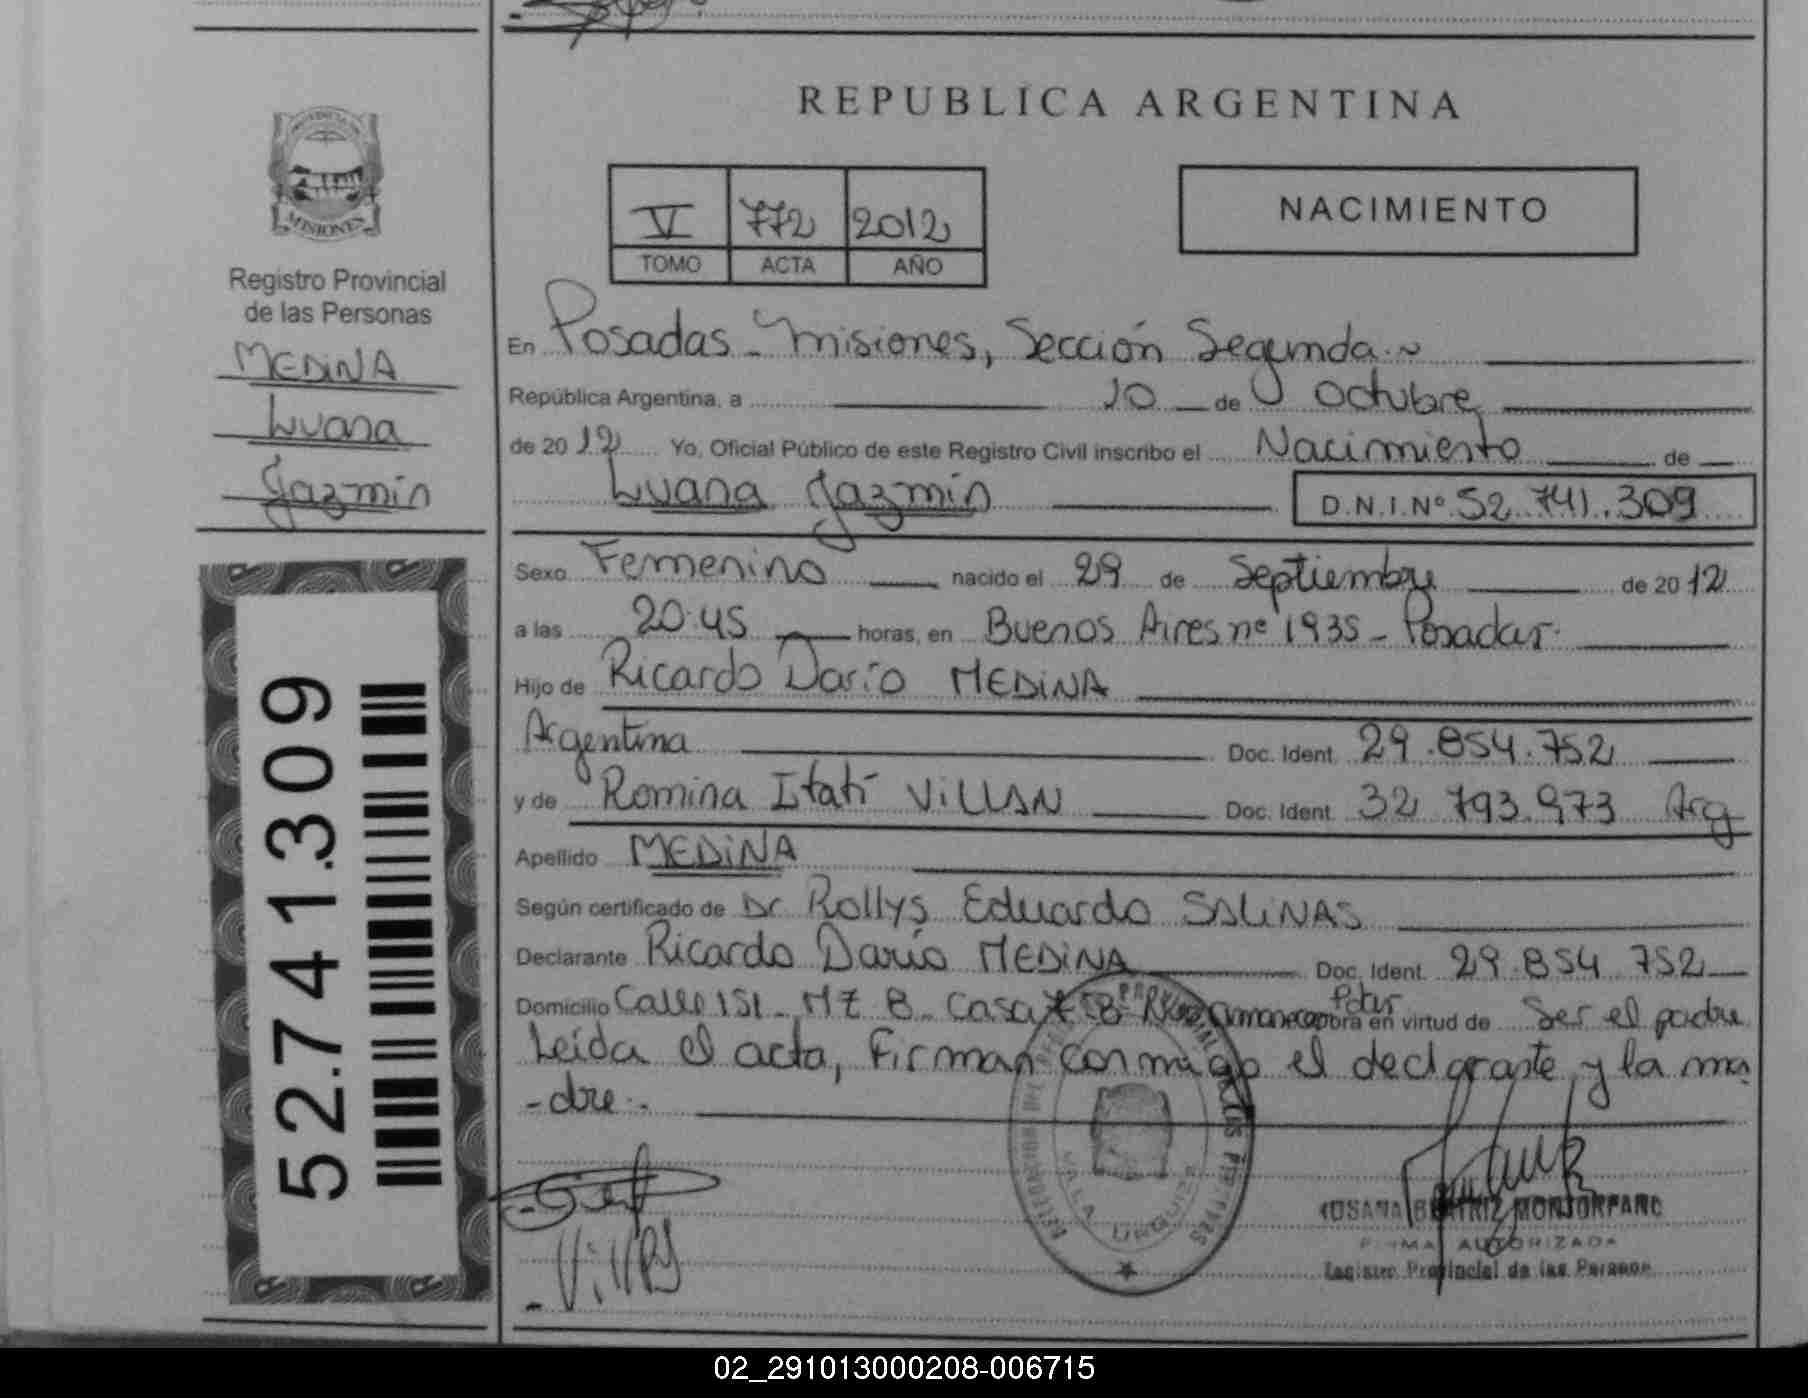 REPUBLICA ARGENTINA
PROVINCIA DE
MISIONES
Registro Provincial
de las Personas
MEDINA
Luana
Jazmín
52.741.309
V 772 2012
TOMO ACTA AÑO
NACIMIENTO
En Posadas - Misiones, Sección Segunda
República Argentina, a 10 de Octubre
de 2012 Yo, Oficial Público de este Registro Civil inscribo el Nacimiento de
Luana Jazmín D.N.I.Nº 52.741.309
Sexo Femenino nacido el 29 de Septiembre de 2012
a las 20:45 horas, en Buenos Aires nº 1935 - Posadas.
Hijo de Ricardo Darío MEDINA
Argentina Doc. Ident. 29.854.752
y de Romina Itatí VILLAN Doc. Ident. 32.793.973 Arg
Apellido MEDINA
Según certificado de Dr Rollys Eduardo SALINAS
Declarante Ricardo Darío MEDINA Doc. Ident. 29.854.752
Domicilio Calle 151 - MZ 8 - Casa en virtud de Ser el padre
Leída el acta, Firman conmigo el declarante y la ma
-dre.-
VILLA URQUIZA
FIRMA AUTORIZADA
Registro Provincial de las Personas
02_291013000208-006715